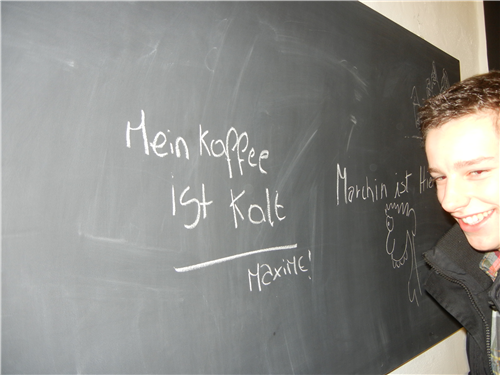 Mein Koffee
ist Kalt
Maxime!
Marchin ist